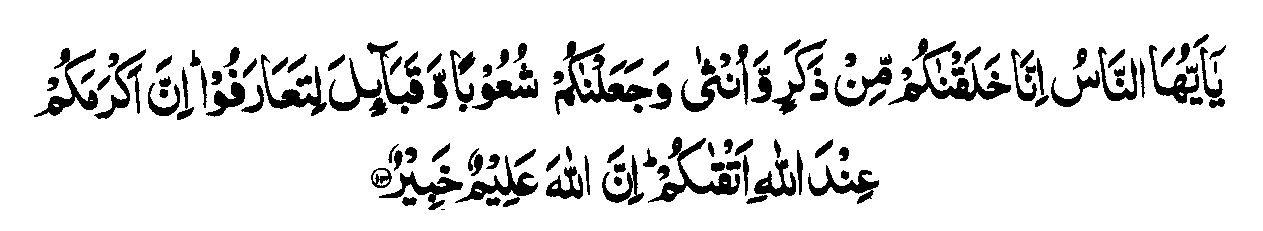 يٰۤاَيُّهَا النَّاسُ اِنَّا خَلَقْنٰكُمْ مِّنْ ذَكَرٍ وَّ اُنْثٰى وَ جَعَلْنٰكُمْ شُعُوْبًا وَّ قَبَآىِٕلَ لِتَعَارَفُوْا ؕ اِنَّ اَكْرَمَكُمْ
عِنْدَ اللّٰهِ اَتْقٰىكُمْ ؕ اِنَّ اللّٰهَ عَلِيْمٌ خَبِيْرٌ ۝۱۳